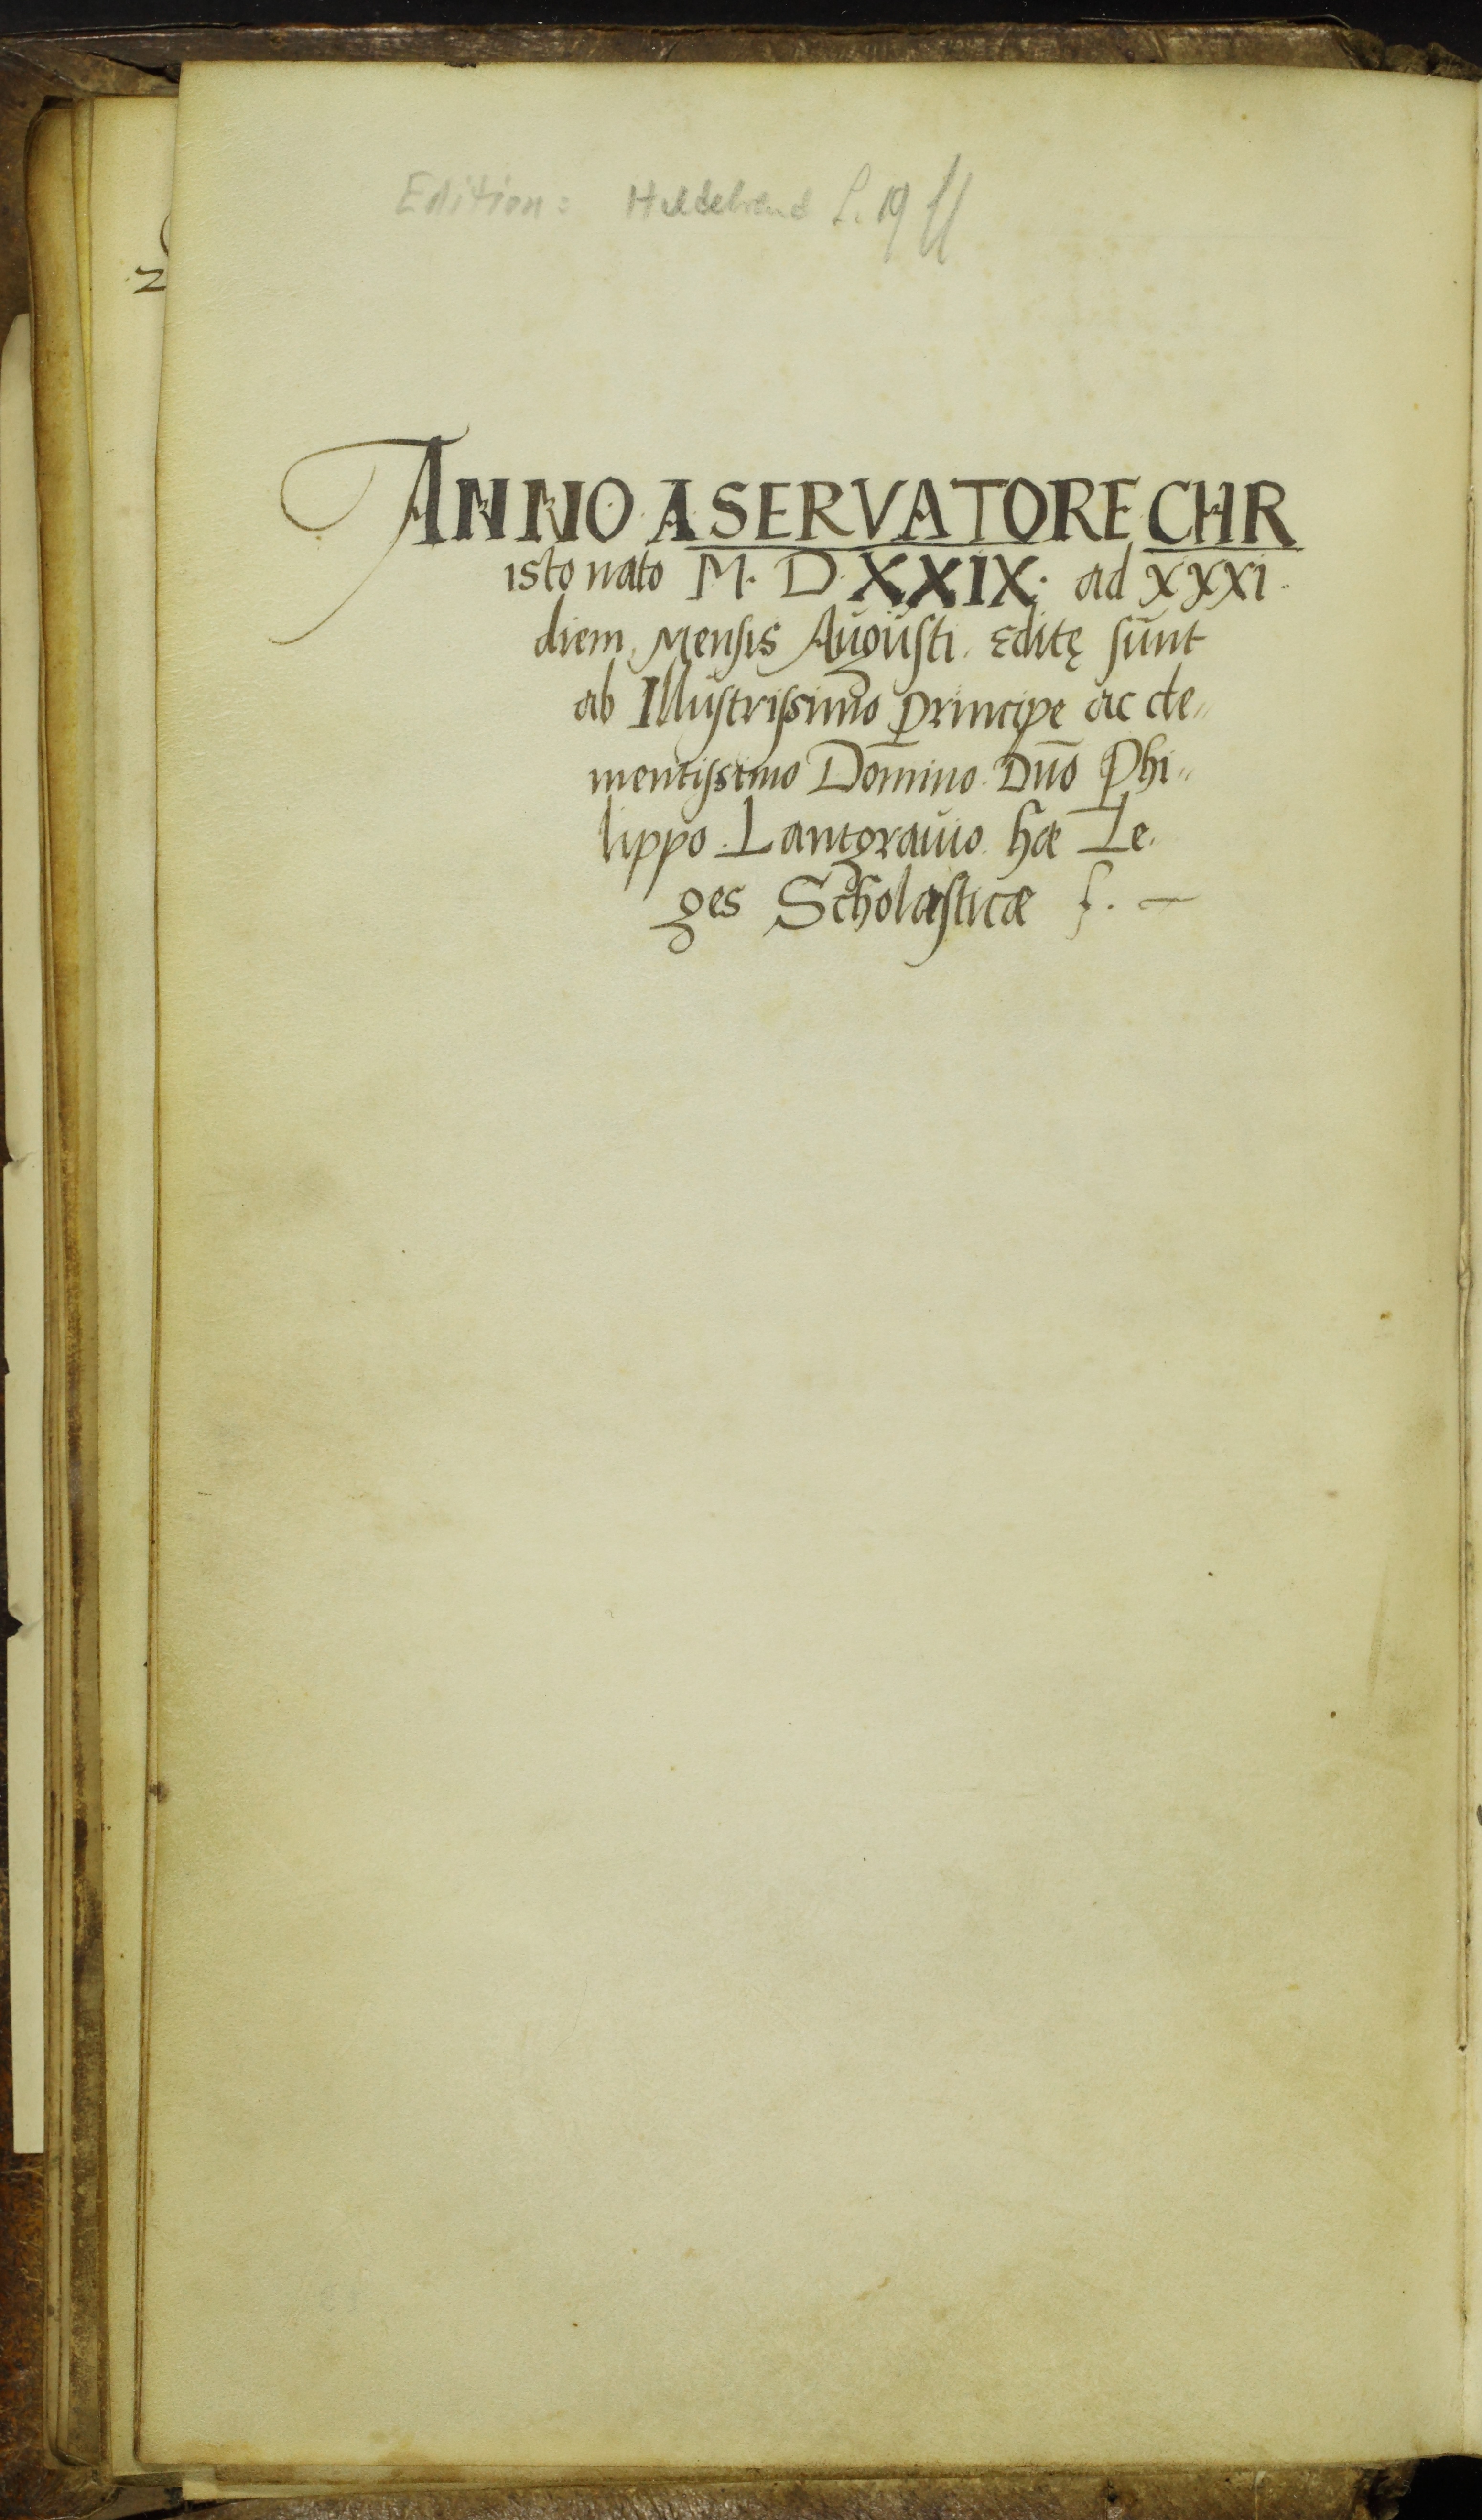 Edition: Hildebrand S. 19 ff
ANNO A SERVATORE CHR
isto nato M. D. XXIX. ad XXXI.
diem. Mensis Augusti. Editę sunt
ab Illustrissimo Principe ac cle„
mentissimo Domino. Dn̄o Phi„
lippo. Lantgravio. hæ Le.
ges Scholasticæ f. —